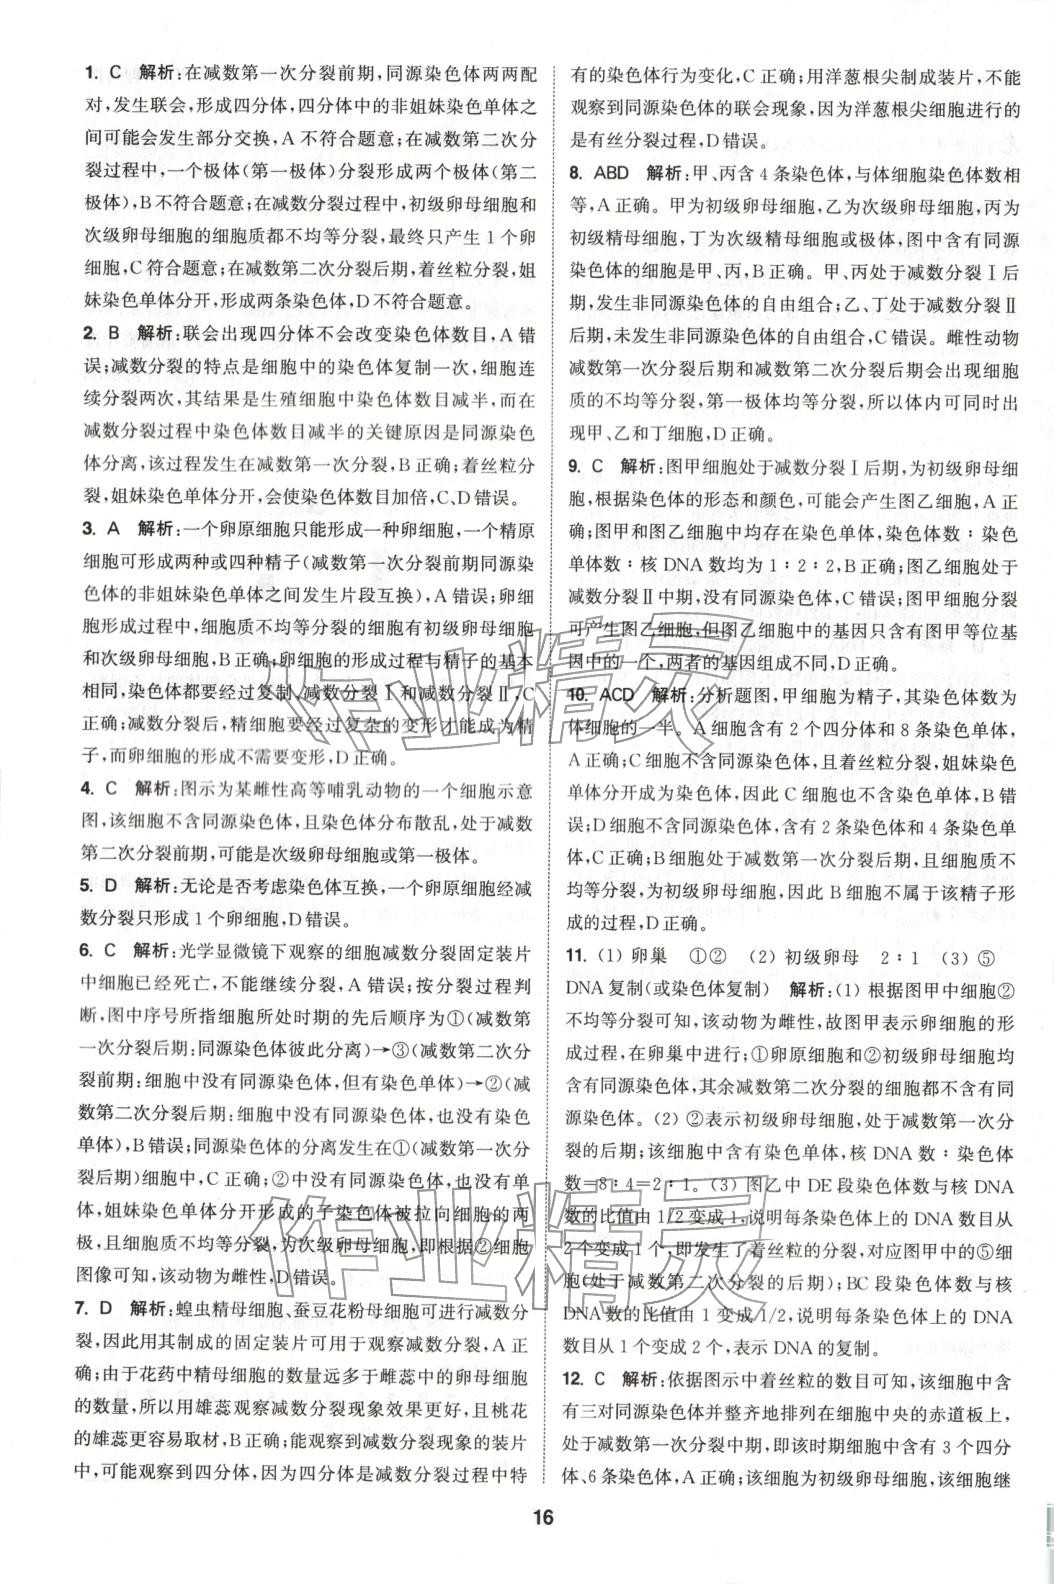 1. C 解析:在减数第一次分裂前期,同源染色体两两配
对,发生联会,形成四分体,四分体中的非姐妹染色单体之
间可能会发生部分交换,A 不符合题意;在减数第二次分
裂过程中,一个极体(第一极体)分裂形成两个极体(第二
极体),B不符合题意;在减数分裂过程中,初级卵母细胞和
次级卵母细胞的细胞质都不均等分裂,最终只产生 1 个卵
细胞,C符合题意;在减数第二次分裂后期,着丝粒分裂,姐
妹染色单体分开,形成两条染色体,D不符合题意。
2. B 解析:联会出现四分体不会改变染色体数目,A 错
误;减数分裂的特点是细胞中的染色体复制一次,细胞连
续分裂两次,其结果是生殖细胞中染色体数目减半,而在
减数分裂过程中染色体数目减半的关键原因是同源染色
体分离,该过程发生在减数第一次分裂,B正确;着丝粒分
裂,姐妹染色单体分开,会使染色体数目加倍,C、D错误。
3. A 解析:一个卵原细胞只能形成一种卵细胞,一个精原
细胞可形成两种或四种精子(减数第一次分裂前期同源染
色体的非姐妹染色单体之间发生片段互换),A错误;卵细
胞形成过程中,细胞质不均等分裂的细胞有初级卵母细胞
和次级卵母细胞,B正确;卵细胞的形成过程与精子的基本
相同,染色体都要经过复制、减数分裂Ⅰ和减数分裂Ⅱ,C
正确;减数分裂后,精细胞要经过复杂的变形才能成为精
子,而卵细胞的形成不需要变形,D正确。
4. C 解析:图示为某雌性高等哺乳动物的一个细胞示意
图,该细胞不含同源染色体,且染色体分布散乱,处于减数
第二次分裂前期,可能是次级卵母细胞或第一极体。
5. D 解析:无论是否考虑染色体互换,一个卵原细胞经减
数分裂只形成1个卵细胞,D错误。
6. C 解析:光学显微镜下观察的细胞减数分裂固定装片
中细胞已经死亡,不能继续分裂,A 错误;按分裂过程判
断,图中序号所指细胞所处时期的先后顺序为①(减数第
一次分裂后期:同源染色体彼此分离)→③(减数第二次分
裂前期:细胞中没有同源染色体,但有染色单体)→②(减
数第二次分裂后期:细胞中没有同源染色体,也没有染色
单体),B错误;同源染色体的分离发生在①(减数第一次分
裂后期)细胞中,C 正确;②中没有同源染色体,也没有染色
单体,姐妹染色单体分开形成的子染色体被拉向细胞的两
极,且细胞质不均等分裂,为次级卵母细胞,即根据②细胞
图像可知,该动物为雌性,D错误。
7. D 解析:蝗虫精母细胞、蚕豆花粉母细胞可进行减数分
裂,因此用其制成的固定装片可用于观察减数分裂,A 正
确;由于花药中精母细胞的数量远多于雌蕊中的卵母细胞
的数量,所以用雄蕊观察减数分裂现象效果更好,且桃花
的雄蕊更容易取材,B正确;能观察到减数分裂现象的装片
中,可能观察到四分体,因为四分体是减数分裂过程中特
有的染色体行为变化,C正确;用洋葱根尖制成装片,不能
观察到同源染色体的联会现象,因为洋葱根尖细胞进行的
是有丝分裂过程,D错误。
8. ABD 解析:甲、丙含 4 条染色体,与体细胞染色体数相
等,A正确。甲为初级卵母细胞,乙为次级卵母细胞,丙为
初级精母细胞,丁为次级精母细胞或极体,图中含有同源
染色体的细胞是甲、丙,B正确。甲、丙处于减数分裂Ⅰ后
期,发生非同源染色体的自由组合;乙、丁处于减数分裂Ⅱ
后期,未发生非同源染色体的自由组合,C错误。雌性动物
减数第一次分裂后期和减数第二次分裂后期会出现细胞
质的不均等分裂,第一极体均等分裂,所以体内可同时出
现甲、乙和丁细胞,D正确。
9. C 解析:图甲细胞处于减数分裂Ⅰ后期,为初级卵母细
胞,根据染色体的形态和颜色,可能会产生图乙细胞,A正
确;图甲和图乙细胞中均存在染色单体,染色体数∶染色
单体数∶核DNA数均为1∶2∶2,B正确;图乙细胞处于
减数分裂Ⅱ中期,没有同源染色体,C错误;图甲细胞分裂
可产生图乙细胞,但图乙细胞中的基因只含有图甲等位基
因中的一个,两者的基因组成不同,D正确。
10. ACD 解析:分析题图,甲细胞为精子,其染色体数为
体细胞的一半。A细胞含有2个四分体和8条染色单体,
A正确;C细胞不含同源染色体,且着丝粒分裂,姐妹染色
单体分开成为染色体,因此 C 细胞也不含染色单体,B错
误;D细胞不含同源染色体,含有2条染色体和4条染色单
体,C正确;B细胞处于减数第一次分裂后期,且细胞质不
均等分裂,为初级卵母细胞,因此 B 细胞不属于该精子形
成的过程,D正确。
11. (1) 卵巢 ①② (2) 初级卵母 2∶1 (3) ⑤
DNA复制(或染色体复制) 解析:(1) 根据图甲中细胞②
不均等分裂可知,该动物为雌性,故图甲表示卵细胞的形
成过程,在卵巢中进行;①卵原细胞和②初级卵母细胞中
含有同源染色体,其余减数第二次分裂的细胞都不含有同
源染色体。(2) ②表示初级卵母细胞,处于减数第一次分
裂的后期;该细胞中含有染色单体,核DNA数∶染色体
数=8∶4=2∶1。(3) 图乙中DE段染色体数与核DNA
数的比值由1/2变成1,说明每条染色体上的DNA数目从
2个变成1个,即发生了着丝粒的分裂,对应图甲中的⑤细
胞(处于减数第二次分裂的后期);BC段染色体数与核
DNA数的比值由 1 变成1/2,说明每条染色体上的DNA
数目从1个变成2个,表示DNA的复制。
12. C 解析:依据图示中着丝粒的数目可知,该细胞中含
有三对同源染色体并整齐地排列在细胞中央的赤道板上,
处于减数第一次分裂中期,即该时期细胞中含有3个四分
体、6条染色体,A正确;该细胞为初级卵母细胞,该细胞继
16
作业精灵
作业精灵